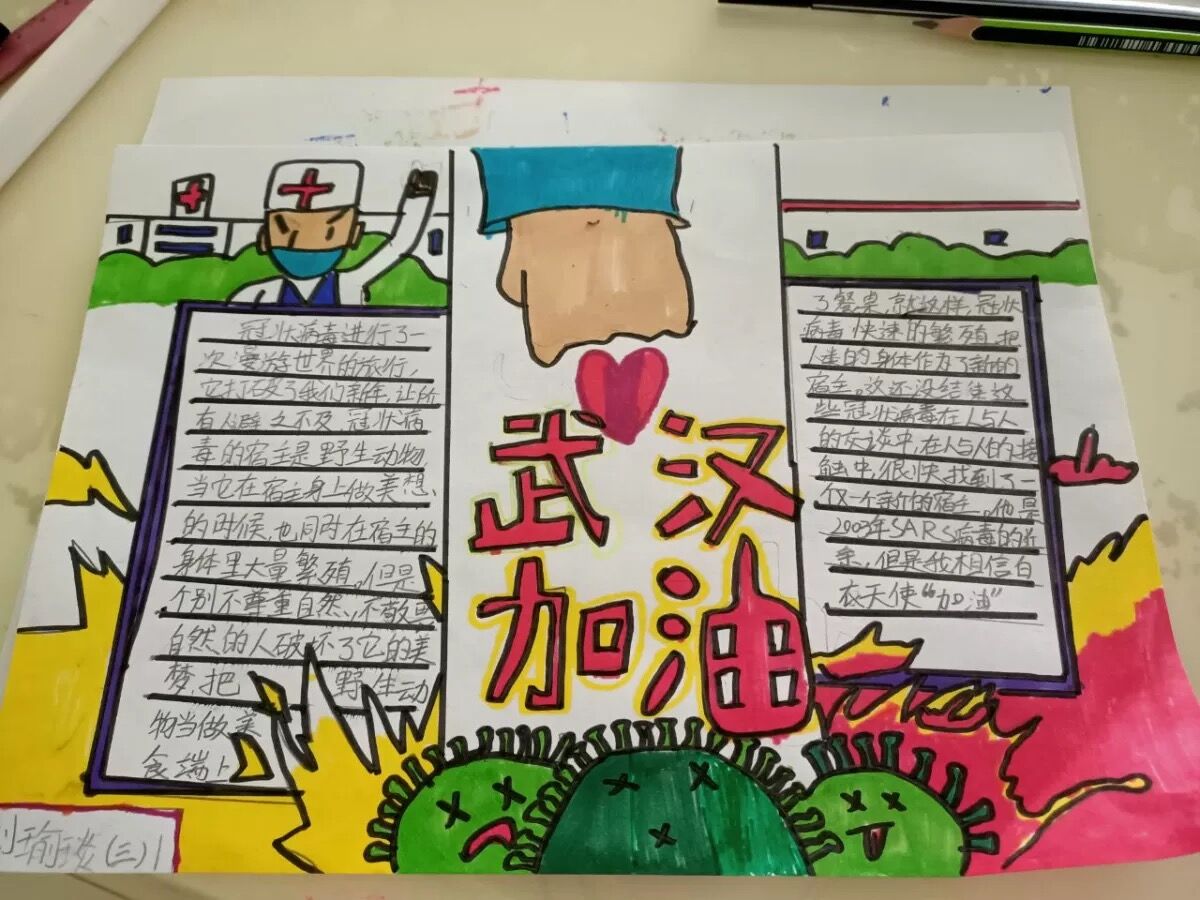 冠状病毒进行了一
次漫游世界的旅行,
它打破了我们新年,让所
有人避之不及 冠状病
毒的宿主是野生动物
当它在宿主身上做美想、
的时候,也同时在宿主的
身体里大量繁殖。但是
个别不尊重自然,不敬畏
自然的人破坏了它的美
梦,把 野生动
物当做美
食端上
武汉
加油
了餐桌,就这样,冠状
病毒快速的繁殖,把
人类的身体作为了新的
宿主。这还没结束这
些冠状病毒在人与人
的交谈中,在人与人的接
触中,很快找到了一
个新的宿主。他是
2003年SARS病毒的近
亲,但是我相信白
衣天使“加油”
瑜 (三)1